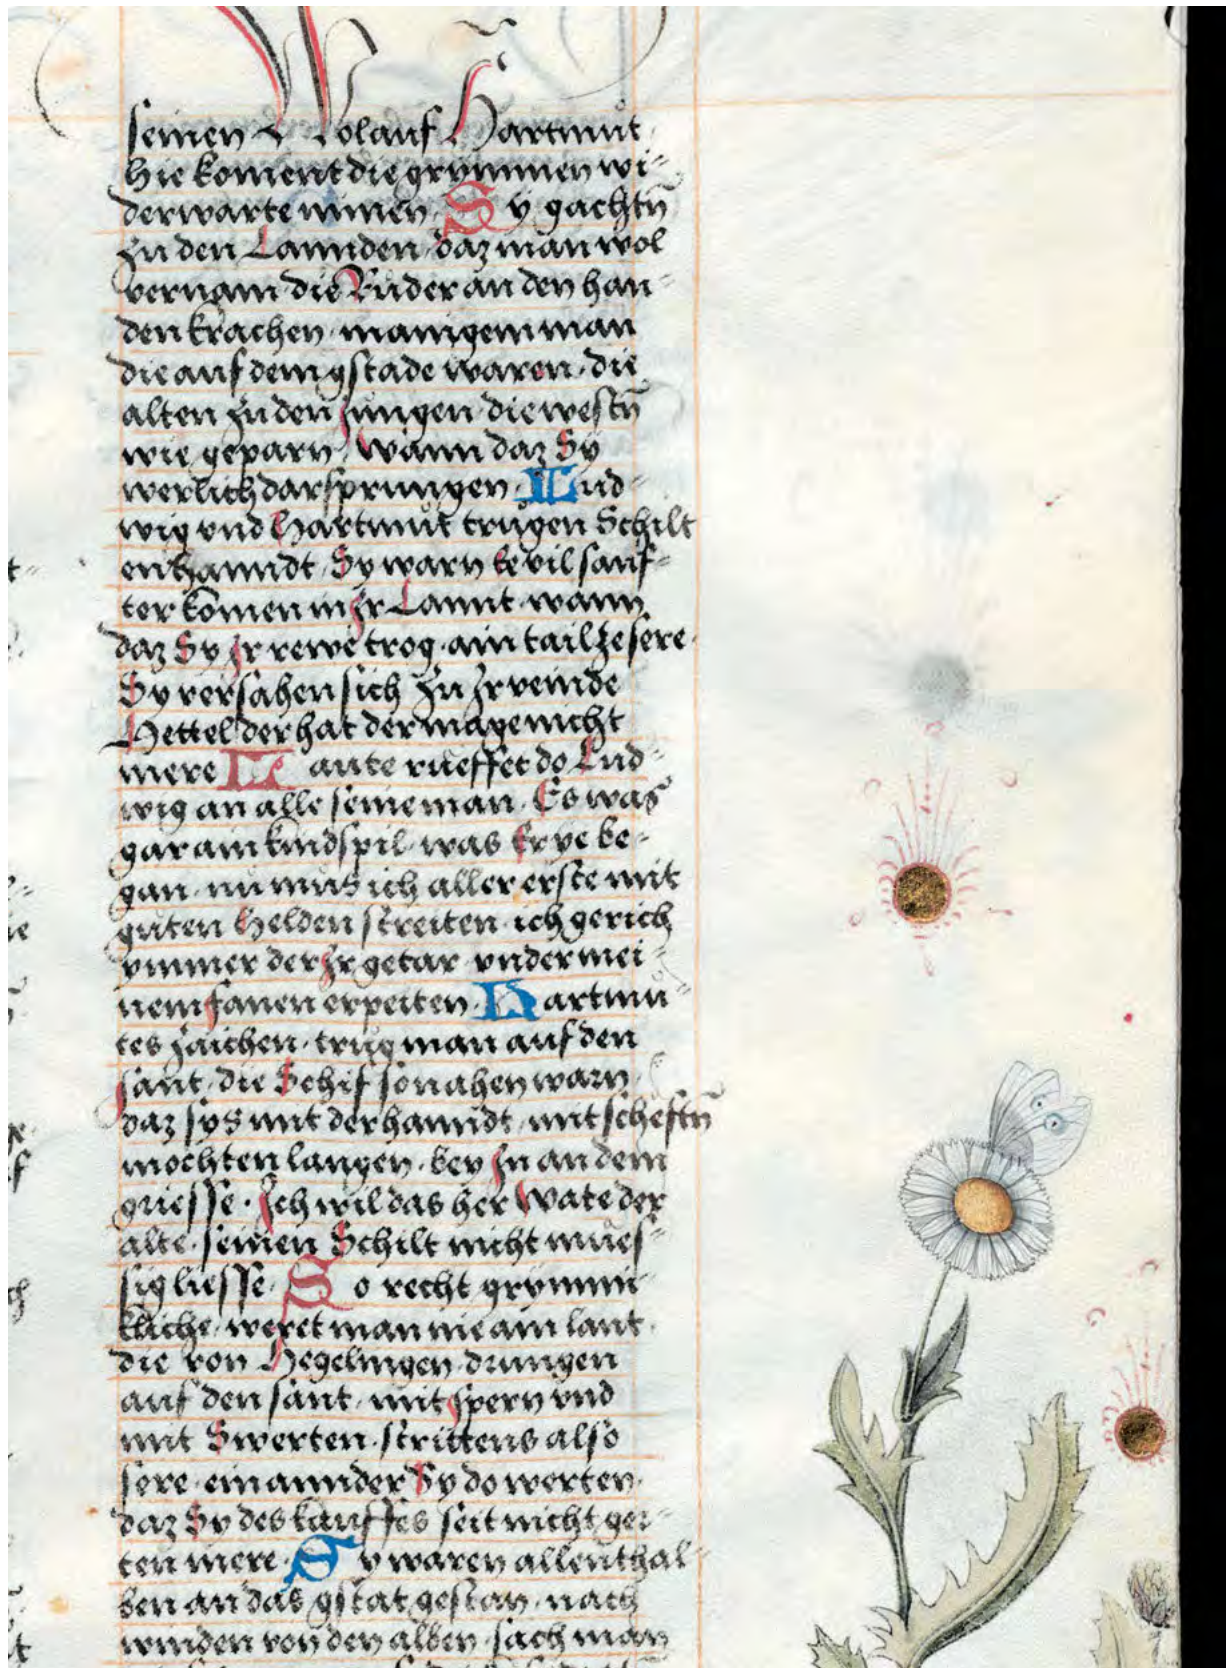 seinen Wolauf Hartmůt
hie koment die grymmen wi-
derwarte mynen. Sy gachtn̄
zu den Lannden daz man wol
vernam die Růder an den han-
den krachen manigem man
die auf dem gstade waren. die
alten zu den Jungen. die westn̄
wie geparn. wann daz Sy
werlich darsprungen. Lud-
wig vnd Hartmůt trůgen Schilt
enhanndt. Sy warn Ee vil sanf-
ter komen in Jr Lannt. wann
daz Sy Jr rewe trog. ain tail ze sere.
Sy versahen sich zu Jr veinde
Hettel der hat der mage nicht
mere Laute rueffet do Lud-
wig an alle seine man. Es was
gar ain kindspil. was Er ye be-
gan. nu mus ich aller erste mit
gůten Helden streiten. ich gerich
ymmer der Jr getar vnder mei-
nem fanen erpeiten. Hartmu-
tes zaichen. trůg man auf den
sant. die Schif so nahen warn
daz sys mit der hanndt. mit scheftn̄
mochten langen. bey Jn an dem
griesse. Ich wil das her Wate der
alte. seinen Schilt nicht mües-
sig liesse. So recht grymmi-
kliche. weret man nie ain lant.
die von Hegelingen drungen
auf den sant. mit spern vnd
mit Swerten. strittens also
sere. einannder Sy do werten.
daz Sy des kauffes seit nicht ger-
ten mere. Sy waren allenthal-
ben an das gstat gestan. nach
winden von den alben. sach man